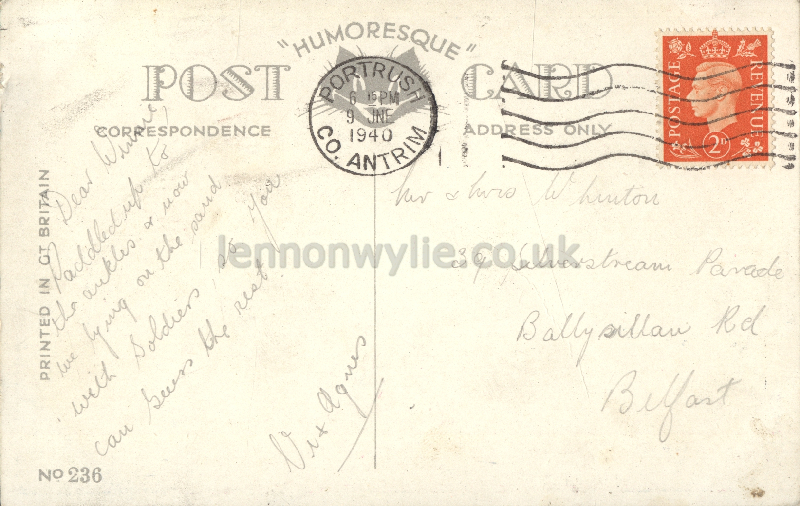 "HUMORESQUE"
POST CARD
CORRESPONDENCE
ADDRESS ONLY
PORTRUSH
6 PM
9 JNE
1940
CO. ANTRIM
POSTAGE
REVENUE
2D
PRINTED IN GT BRITAIN
Dear Winnie
Paddled up to
the ankles & now
we lying on the sand
with Soldiers, so you
can guess the rest
Vi x Agnes
Mr & Mrs Whinton
39 Silverstream Parade
Ballysillan Rd
Belfast
lennonwylie.co.uk
No 236